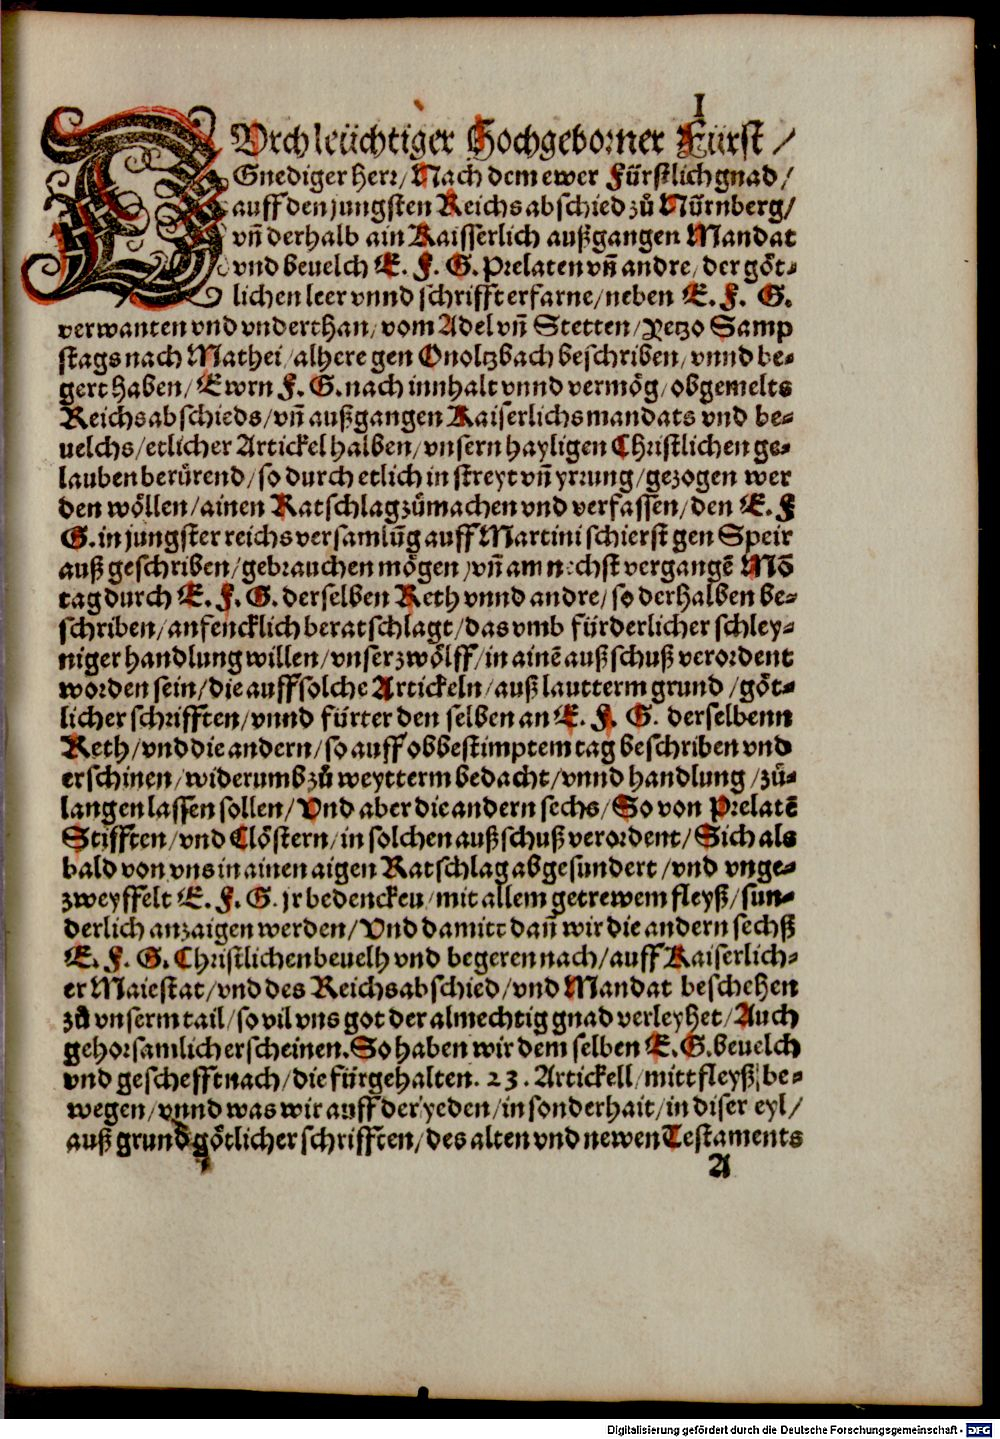 I
DUrchleüchtiger Hochgeborner Fürst /
Gnediger herr/ Nach dem ewer Fürstlich gnad/
auff den jungsten Reichsabschied zů Nürnberg/
vñ derhalb ain Kaisserlich außgangen Mandat
vnd beuelch E. F. G. Prelaten vñ andre/ der göt⸗
lichen leer vnnd schrifft erfarne/ neben E. F. G.
verwanten vnd vnderthan/ vom Adel vñ Stetten/ Petzo Samp
stags nach Mathei/ alhere gen Onoltzbach beschriben/ vnnd be⸗
gert haben/ Ewrn F. G. nach innhalt vnnd vermög/ obgemelts
Reichsabschieds/ vñ außgangen Kaiserlichs mandats vnd be⸗
uelchs/ etlicher Artickel halben/ vnsern hayligen Christlichen ge⸗
lauben berürend/ so durch etlich in streyt vñ yrrung/ gezogen wer
den wöllen/ ainen Ratschlag zůmachen vnd verfassen/ den E. F
G. in jungster reichs versamlũg auff Martini schierst gen Speir
auß geschriben/ gebrauchen mögen/ vñ am nechst vergangẽ Mõ
tag durch E. F. G. derselben Reth vnnd andre/ so derhalben be⸗
schriben/ anfencklich beratschlagt/ das vmb fürderlicher schley⸗
niger handlung willen/ vnser zwölff/ in ainẽ außschuß verordent
worden sein/ die auff solche Artickeln/ auß lautterm grund / göt⸗
licher schrifften/ vnnd fürter den selben an E. F. G. derselbenn
Reth/ vnd die andern/ so auff obbestimptem tag beschriben vnd
erschinen/ widerumb zů weytterm bedacht/ vnnd handlung / zů⸗
langen lassen sollen/ Vnd aber die andern sechs/ So von Prelatẽ
Stifften/ vnd Clöstern/ in solchen außschuß verordent/ Sich als
bald von vns in ainen aigen Ratschlag abgesundert / vnd vnge⸗
zweyffelt E. F. G. jr bedencken/ mit allem getrewem fleyß/ sun⸗
derlich anzaigen werden/ Vnd damitt dañ wir die andern sechß
E. F. G. Christlichen beuelh vnd begeren nach/ auff Kaiserlich⸗
er Maiestat/ vnd des Reichsabschied/ vnd Mandat beschehen
zů vnserm tail/ so vil vns got der almechtig gnad verleyhet/ Auch
gehorsamlich erscheinen. So haben wir dem selben E. G. beuelch
vnd geschefft nach/ die fürgehalten. 23. Artickell/ mitt fleyß/ be⸗
wegen/ vnnd was wir auff der yeden/ in sonderhait/ in diser eyl/
auß grund götlicher schrifften/ des alten vnd newen Testaments
A
Digitalisierung gefördert durch die Deutsche Forschungsgemeinschaft - DFG